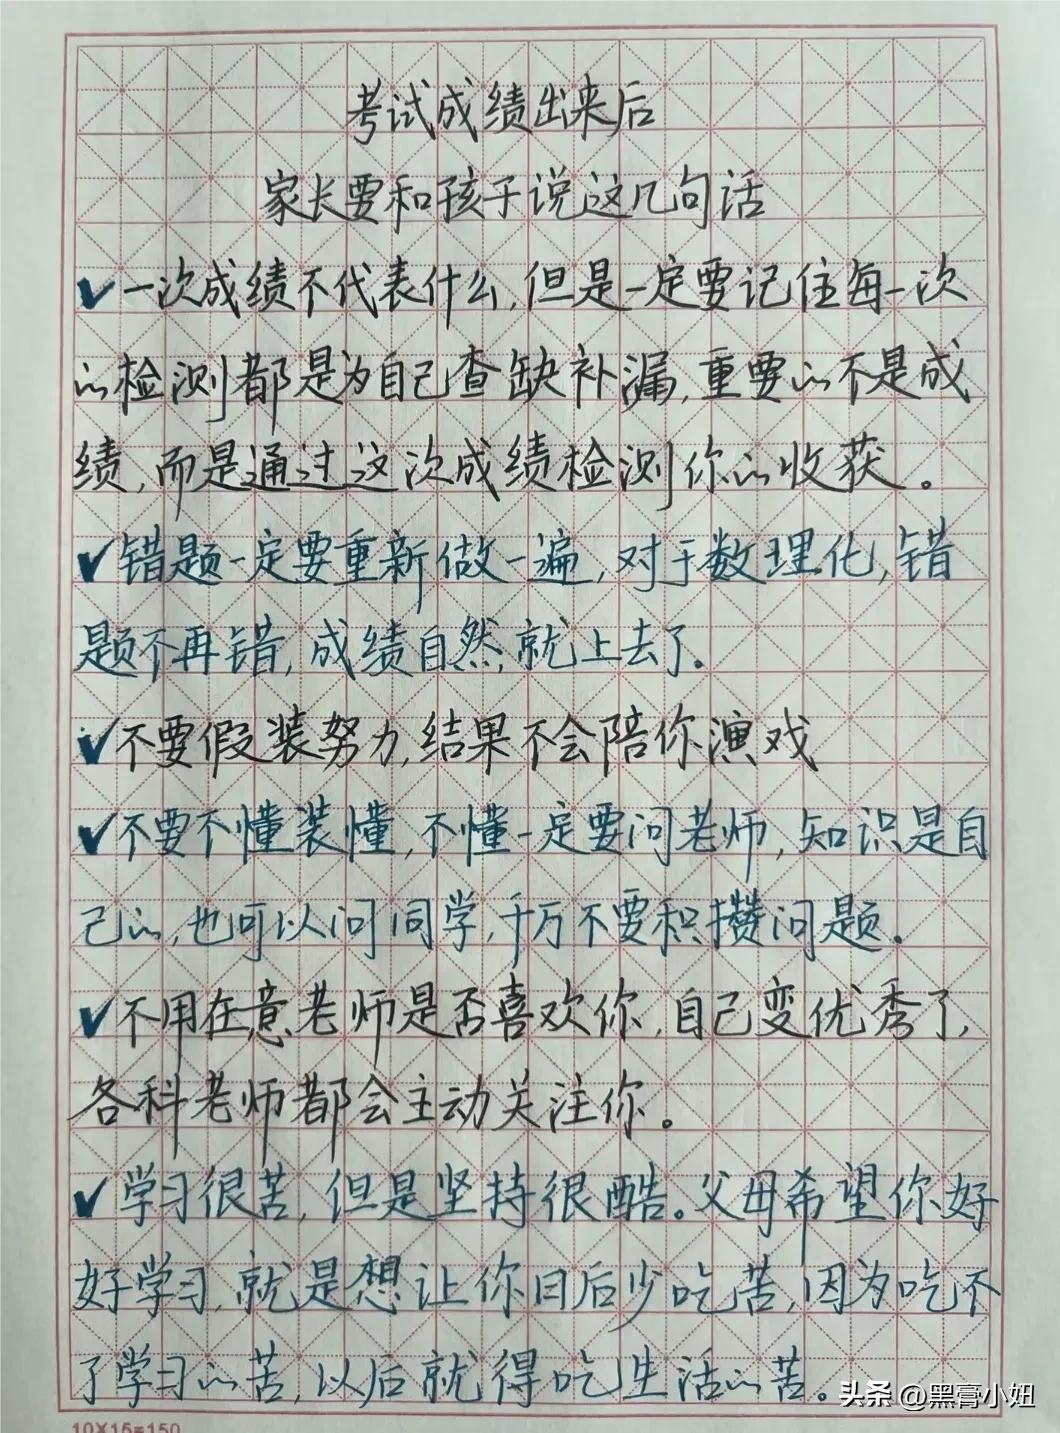 考试成绩出来后
家长要和孩子说这几句话
✔一次成绩不代表什么,但是一定要记住每一次
的检测都是为自己查缺补漏,重要的不是成
绩,而是通过这次成绩检测你的收获。
✔错题一定要重新做一遍,对于数理化,错
题不再错,成绩自然就上去了.
✔不要假装努力,结果不会陪你演戏
✔不要不懂装懂,不懂一定要问老师,知识是自
己的,也可以问同学,千万不要积攒问题.
✔不用在意老师是否喜欢你,自己变优秀了,
各科老师都会主动关注你。
✔学习很苦,但是坚持很酷。父母希望你好
好学习,就是想让你日后少吃苦,因为吃不
了学习的苦,以后就得吃生活的苦。
头条 @黑膏小妞
10X15=150